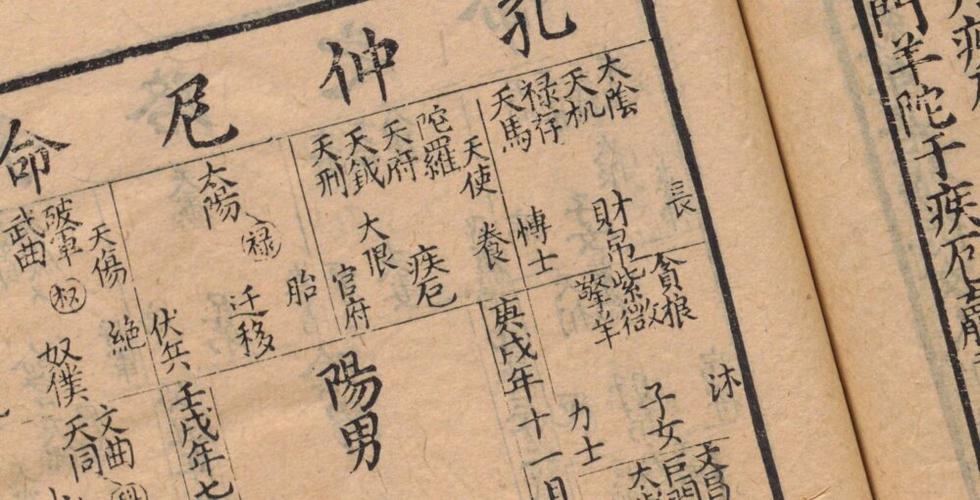 門羊陀于疾厄
孔仲尼命
太陰
天机
禄存
天馬
長
財帛
愽士
天使
陀羅
天府
天鉞
天刑
養
疾厄
大限
官府
太陽
禄
胎
迁移
伏兵
天傷
破軍
武曲
权
絶
奴僕
貪狼
紫微
擎羊
沐
子女
力士
文昌
巨門
庚戌年十一月
陽男
壬戌年七
文曲
天同